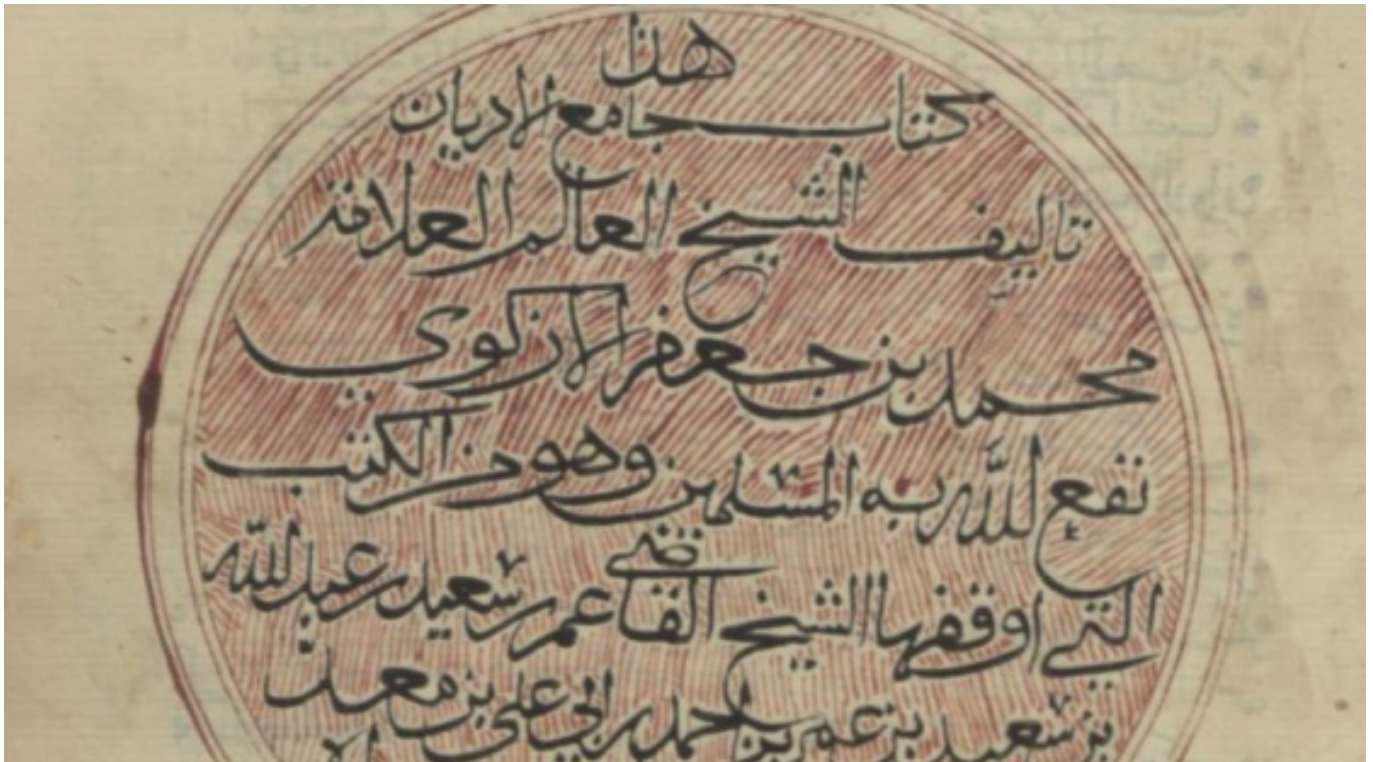 هذا
كتاب جامع الاديان
تاليف الشيخ العالم العلامة
محمد بن جعفر الازكوي
نفع الله به المسلمين وهو من الكتب
التي اوقفها الشيخ القاضي عمر بن سعيد بن عبدالله
بن سعيد بن عمر بن احمد بن ابي علي بن معد